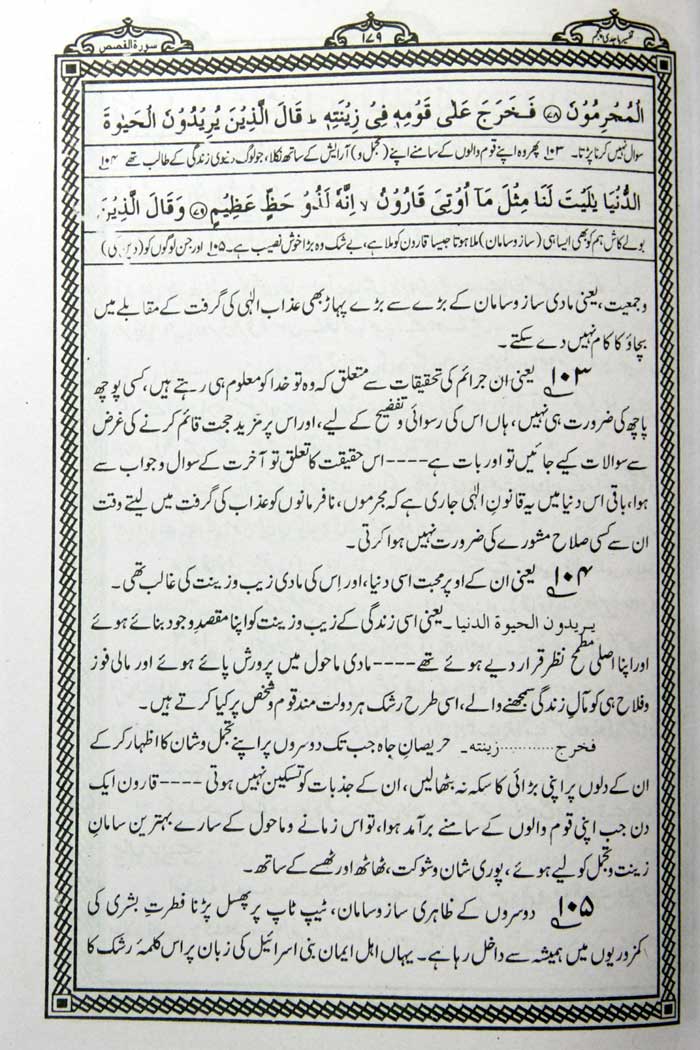 تفسیر ماجدی پنجم
۱۷۹
سورۃ القصص
الْمُجْرِمُوْنَ ﴿۷۸﴾ فَخَرَجَ عَلٰی قَوْمِهٖ فِیْ زِیْنَتِهٖ ؕ قَالَ الَّذِیْنَ یُرِیْدُوْنَ الْحَیٰوةَ
سوال نہیں کرنا پڑتا۔ ۱۰۳ پھر وہ اپنے قوم والوں کے سامنے اپنے (تجمل و) آرایش کے ساتھ نکلا، جو لوگ دنیوی زندگی کے طالب تھے ۱۰۴
الدُّنْیَا یٰلَیْتَ لَنَا مِثْلَ مَاۤ اُوْتِیَ قَارُوْنُ ۙ اِنَّهٗ لَذُوْ حَظٍّ عَظِیْمٍ ﴿۷۹﴾ وَقَالَ الَّذِیْنَ
بولے کاش ہم کو بھی ایسا ہی (ساز و سامان) ملا ہوتا جیسا قارون کو ملا ہے، بے شک وہ بڑا خوش نصیب ہے۔ ۱۰۵ اور جن لوگوں کو (دین کی)
وجمعیت، یعنی مادی ساز و سامان کے بڑے سے بڑے پہاڑ بھی عذاب الٰہی کی گرفت کے مقابلے میں
بچاؤ کا کام نہیں دے سکتے۔
۱۰۳ یعنی ان جرائم کی تحقیقات سے متعلق کہ وہ تو خدا کو معلوم ہی رہتے ہیں، کسی پوچھ
پاچھ کی ضرورت ہی نہیں، ہاں اس کی رسوائی و تفضیح کے لیے، اور اس پر مزید حجت قائم کرنے کی غرض
سے سوالات کیے جائیں تو اور بات ہے---- اس حقیقت کا تعلق تو آخرت کے سوال و جواب سے
ہوا، باقی اس دنیا میں یہ قانونِ الٰہی جاری ہے کہ مجرموں، نافرمانوں کو عذاب کی گرفت میں لیتے وقت
ان سے کسی صلاح مشورے کی ضرورت نہیں ہوا کرتی۔
۱۰۴ یعنی ان کے اوپر محبت اسی دنیا، اور اِس کی مادی زیب و زینت کی غالب تھی۔
یریدون الحیوة الدنیا۔ یعنی اسی زندگی کے زیب و زینت کو اپنا مقصدِ وجود بنائے ہوئے
اور اپنا اصلی مطمحِ نظر قرار دیے ہوئے تھے---- مادی ماحول میں پرورش پائے ہوئے اور مالی فوز
و فلاح ہی کو مآلِ زندگی سمجھنے والے، اسی طرح رشک ہر دولت مند قوم و شخص پر کیا کرتے ہیں۔
فخرج............زینته۔ حریصانِ جاہ جب تک دوسروں پر اپنے تجمل و شان کا اظہار کر کے
ان کے دلوں پر اپنی بڑائی کا سکہ نہ بٹھالیں، ان کے جذبات کو تسکین نہیں ہوتی ---- قارون ایک
دن جب اپنی قوم والوں کے سامنے برآمد ہوا، تو اس زمانے و ماحول کے سارے بہترین سامانِ
زینت و تجمل کو لیے ہوئے، پوری شان و شوکت، ٹھاٹھ اور ٹھسے کے ساتھ۔
۱۰۵ دوسروں کے ظاہری ساز و سامان، ٹیپ ٹاپ پر پھسل پڑنا فطرتِ بشری کی
کمزوریوں میں ہمیشہ سے داخل رہا ہے۔ یہاں اہل ایمان بنی اسرائیل کی زبان پر اس کلمۂ رشک کا